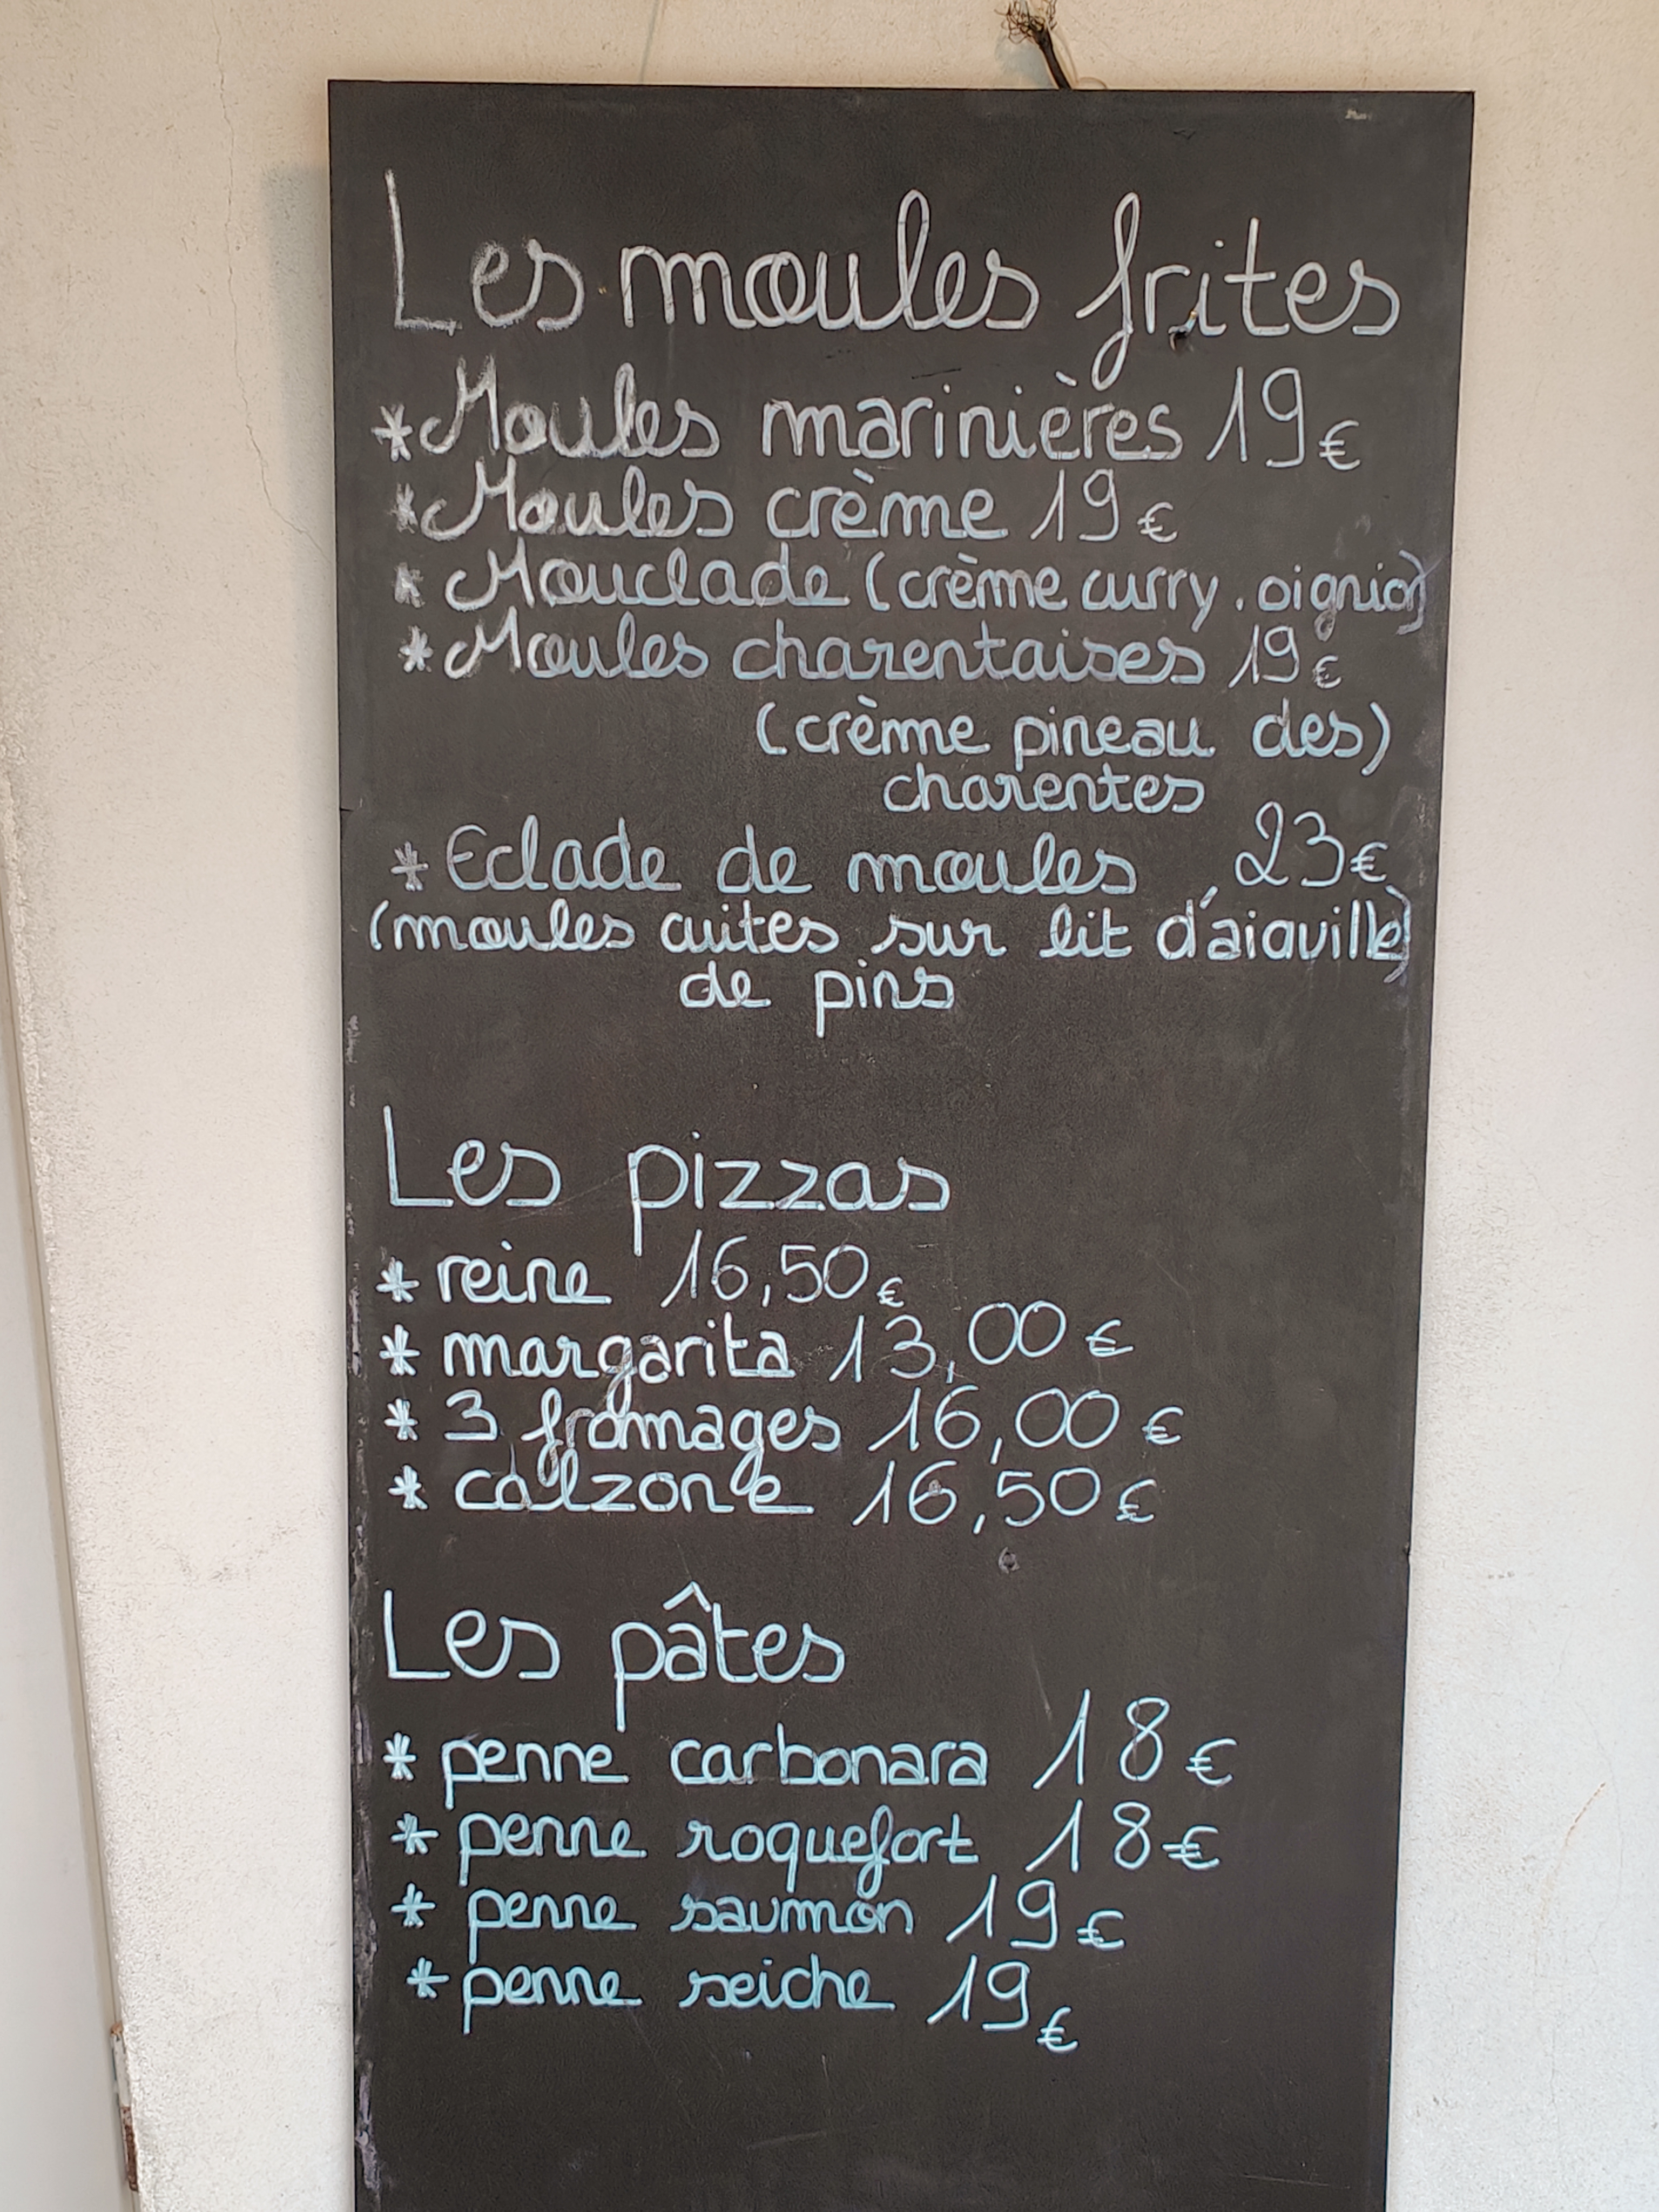 Les moules frites
* Moules marinières 19€
* Moules crème 19€
* Mouclade (crème curry, oignio)
* Moules charentaises 19€
(crème pineau des)
charentes
* Eclade de moules 23€
(moules cuites sur lit d'aiguille)
de pins
Les pizzas
* reine 16,50€
* margarita 13,00€
* 3 fromages 16,00€
* calzone 16,50€
Les pâtes
* penne carbonara 18€
* penne roquefort 18€
* penne saumon 19€
* penne seiche 19€